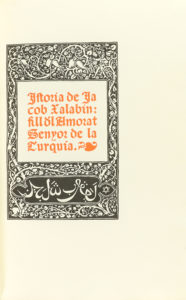 Istoria de Ja
cob Xalabín:
fill dl Amorat
Senyor de la
Turquía.